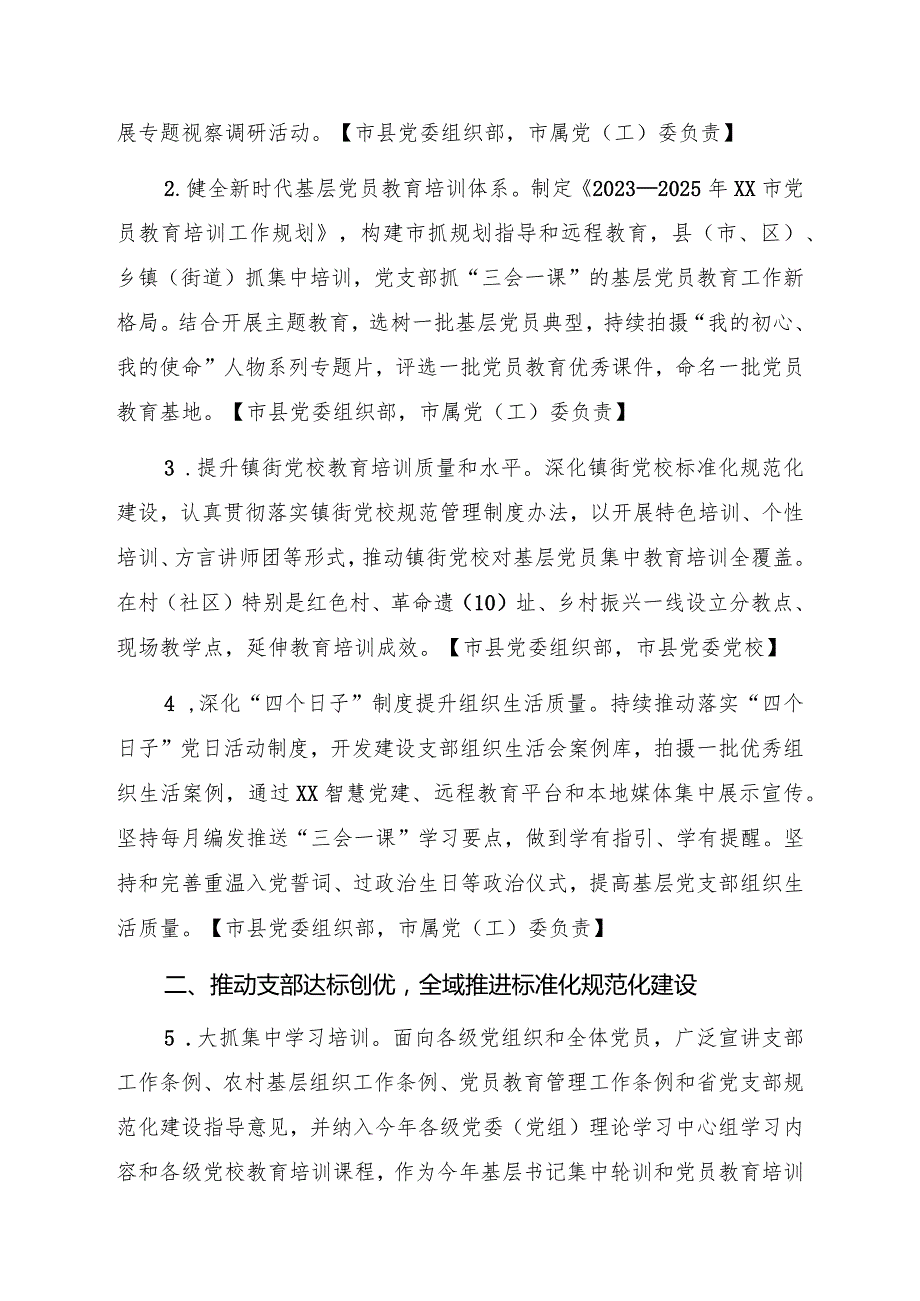 展专题视察调研活动。【市县党委组织部，市属党（工）委负责】
2. 健全新时代基层党员教育培训体系。制定《2023—2025 年 XX 市党
员教育培训工作规划》，构建市抓规划指导和远程教育，县（市、区）、
乡镇（街道）抓集中培训，党支部抓“三会一课”的基层党员教育工作新
格局。结合开展主题教育，选树一批基层党员典型，持续拍摄“我的初心、
我的使命”人物系列专题片，评选一批党员教育优秀课件，命名一批党员
教育基地。【市县党委组织部，市属党（工）委负责】
3 . 提升镇街党校教育培训质量和水平。深化镇街党校标准化规范化
建设，认真贯彻落实镇街党校规范管理制度办法，以开展特色培训、个性
培训、方言讲师团等形式，推动镇街党校对基层党员集中教育培训全覆盖。
在村（社区）特别是红色村、革命遗（10）址、乡村振兴一线设立分教点、
现场教学点，延伸教育培训成效。【市县党委组织部，市县党委党校】
4 , 深化“四个日子”制度提升组织生活质量。持续推动落实“四个
日子”党日活动制度，开发建设支部组织生活会案例库，拍摄一批优秀组
织生活案例，通过 XX 智慧党建、远程教育平台和本地媒体集中展示宣传。
坚持每月编发推送“三会一课”学习要点，做到学有指引、学有提醒。坚
持和完善重温入党誓词、过政治生日等政治仪式，提高基层党支部组织生
活质量。【市县党委组织部，市属党（工）委负责】
二、推动支部达标创优，全域推进标准化规范化建设
5 . 大抓集中学习培训。面向各级党组织和全体党员，广泛宣讲支部
工作条例、农村基层组织工作条例、党员教育管理工作条例和省党支部规
范化建设指导意见，并纳入今年各级党委（党组）理论学习中心组学习内
容和各级党校教育培训课程，作为今年基层书记集中轮训和党员教育培训